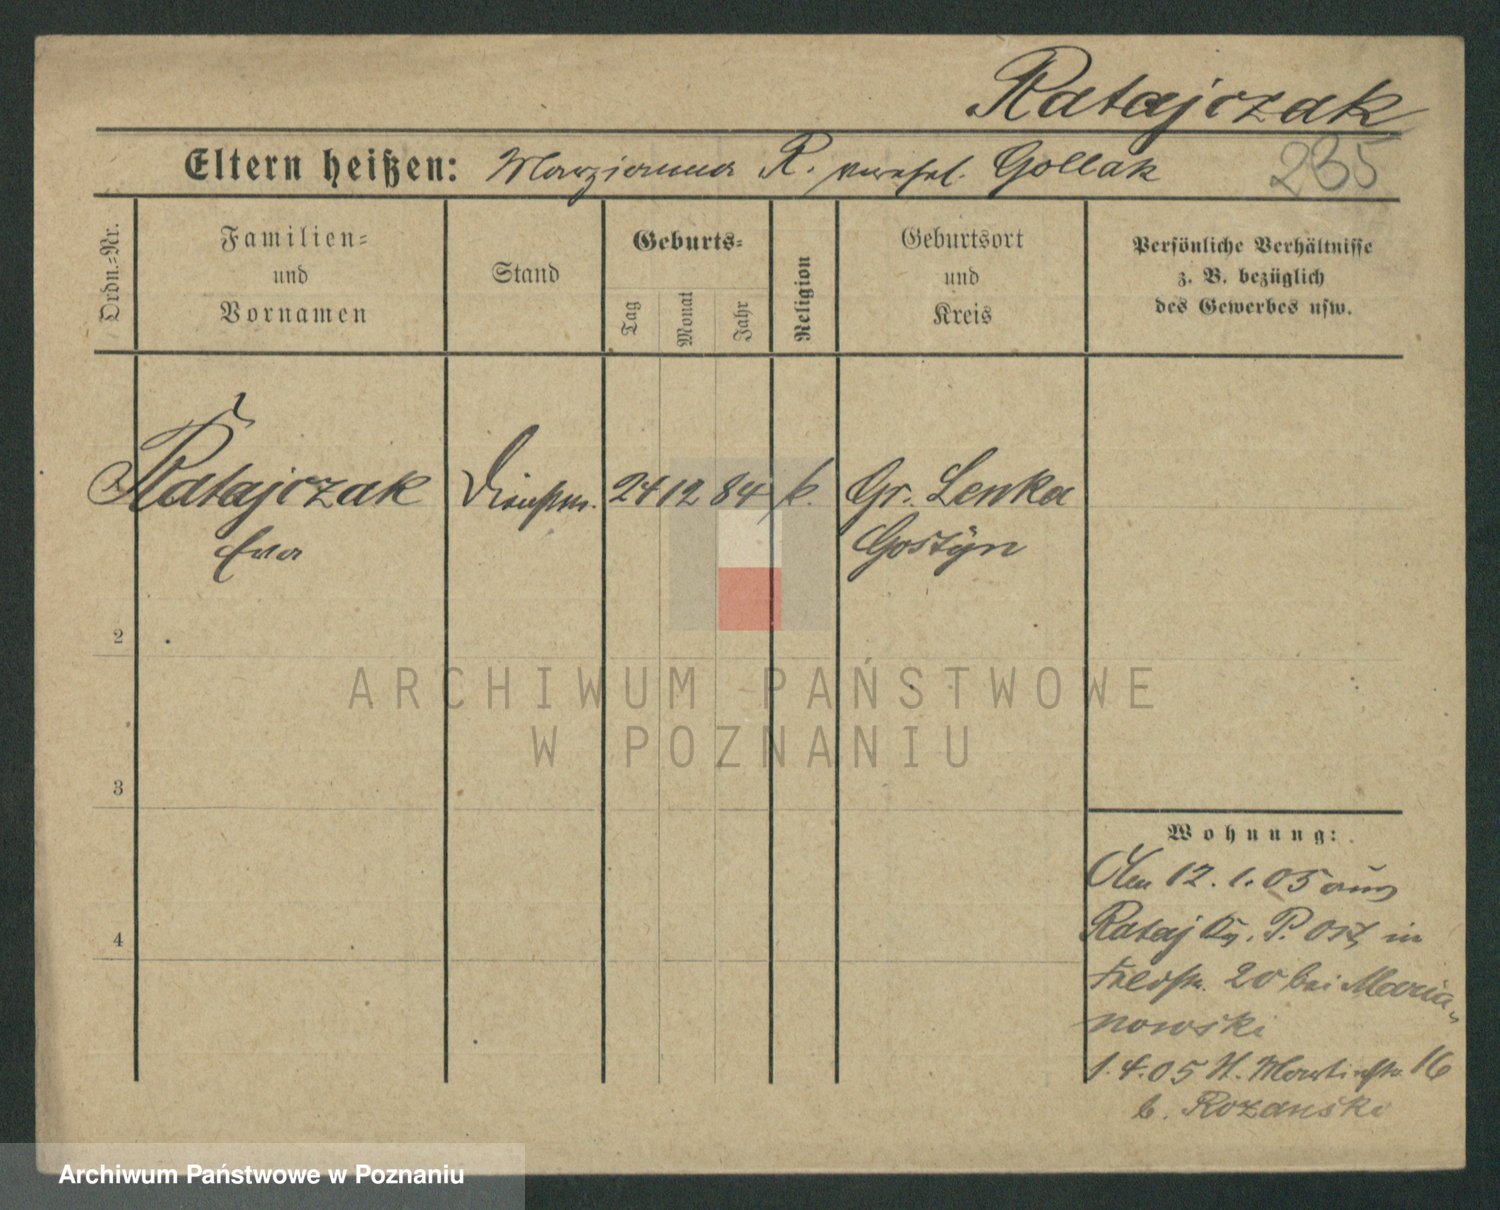 Ratajczak
Eltern heißen: Marzianna R. verehel. Gollak
235
Ordn.-Nr.
Familien-
und
Vornamen
Stand
Geburts-
Tag
Monat
Jahr
Religion
Geburtsort
und
Kreis
Persönliche Verhältnisse
z. B. bezüglich
des Gewerbes usw.
Ratajczak
Eva
Dienstm.
24 12 84
k.
Gr. Lenka
Gostÿn
2
3
4
Wohnung:
Den 12. 1. 05 aus
Rataj P. Ost, in
20 bei Maria-
nowski
1. 4. 05 St. Martinstr. 16
b. Rozanski
ARCHIWUM PAŃSTWOWE
W POZNANIU
Archiwum Państwowe w Poznaniu